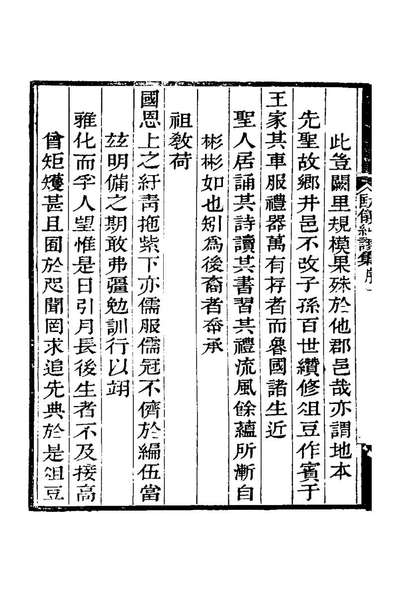 此豈闕里規模果殊於他郡邑哉亦謂地本
先聖故鄉井邑不改子孫百世纘修俎豆作賓于
王家其車服禮器萬有存者而魯國諸生近
聖人居誦其詩讀其書習其禮流風餘蘊所漸自
彬彬如也矧為後裔者奉承
祖敎荷
國恩上之紆靑拖紫下亦儒服儒冠不儕於編伍當
玆明備之期敢弗彊勉訓行以翊
雅化而孚人望惟是日引月長後生者不及接高
曾矩矱甚且囿於咫聞罔求追先典於是俎豆